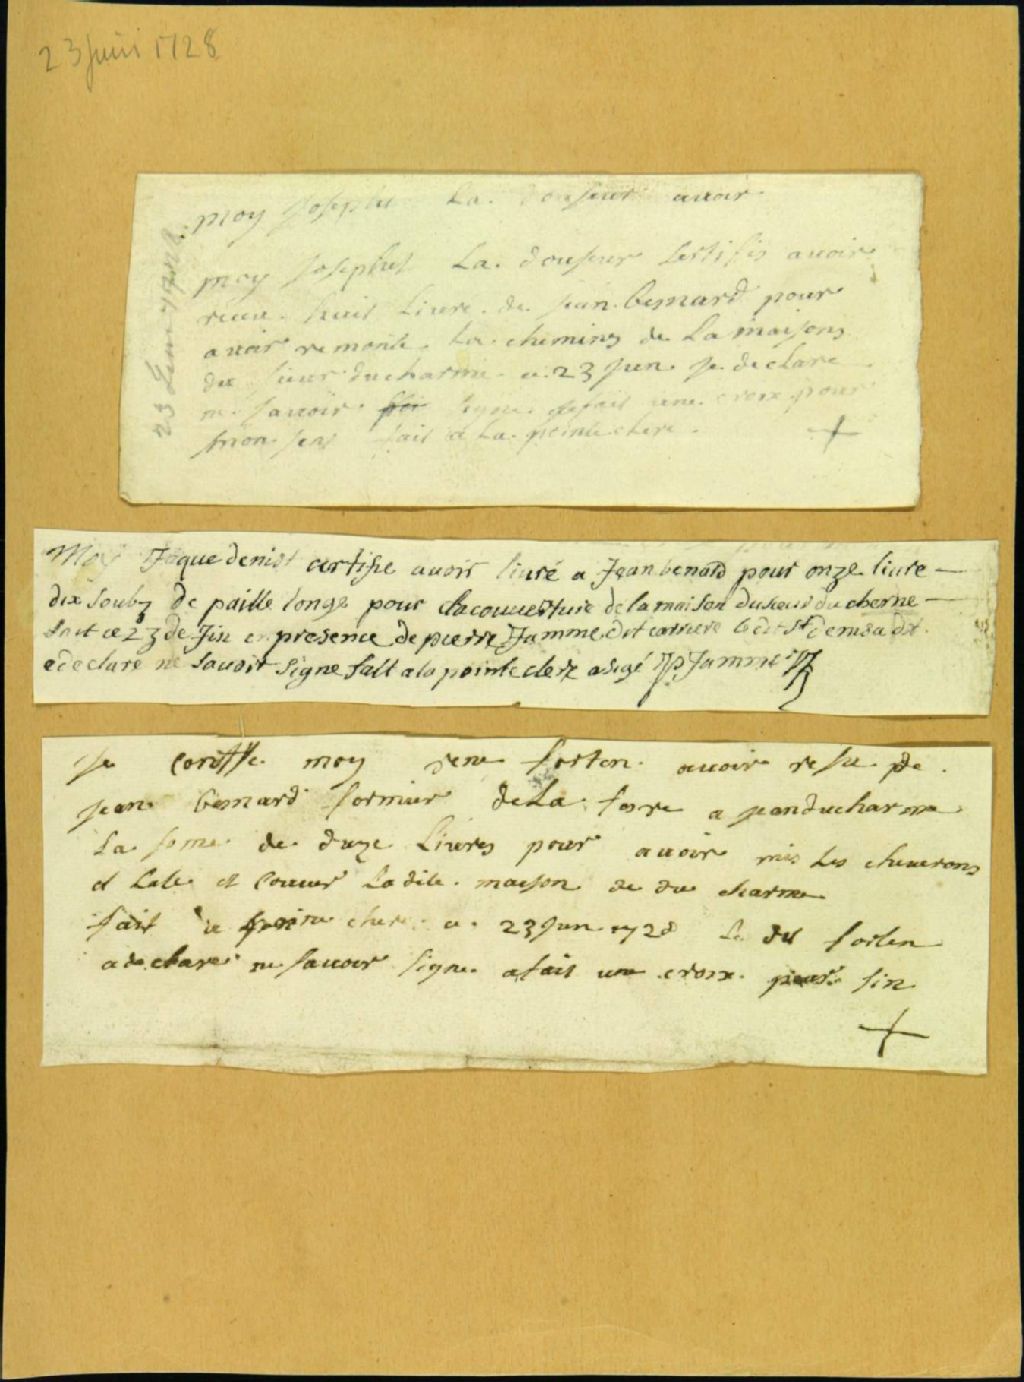 23 juin 1728
moy Josephe La douseur avoir
moy Josephet La douseur sertifis avoir
receu huit Livre de jean bernard pour
avoir remonte La chemins de La maisons
du sieur ducharme ce 23 Jun je declare
ne savoir signe jefait une croix pour
mon sein fait a La pointe clere
+
Moy Jaque denist certifie avoir livré a Jean benard pour onze livre
dix soubz de paille longe pour la couverture de la maison du sieur du cherne
fait ce 23 de Jin en presence de pierre Jamme dit carriere le dit st denis a dit
e declare ne savoir signe fait a la pointe clere P Jamme
je certiffe moy rene forten avoir resu de
jean bernard formier de La terre a jean ducharme
La some de duze Livres pour avoir mis les cheuerons
et Late et couuer Ladite maison de du charme
fait a pointe clere ce 23 jun 1728 Le dit forten
a declare ne savoir signe a fait une croix pour sin
+